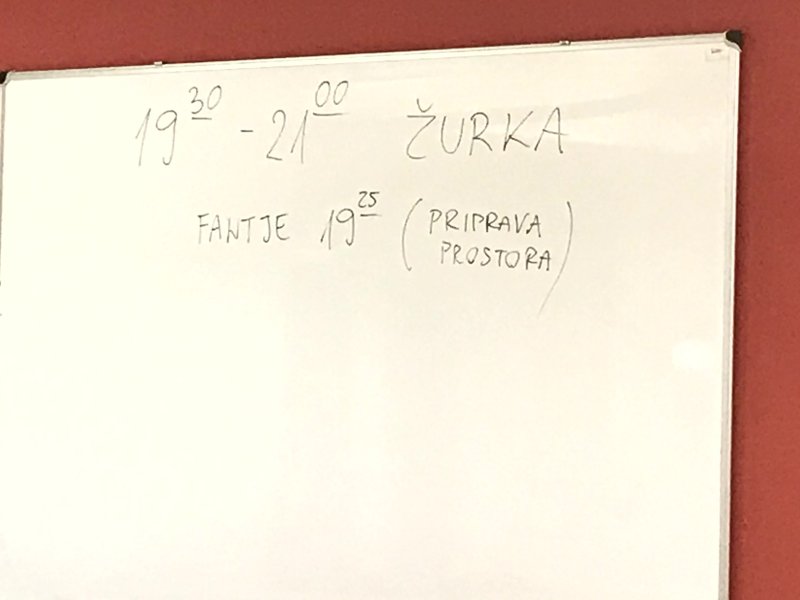 19³⁰ - 21⁰⁰ ŽURKA
FANTJE 19²⁵ (PRIPRAVA
PROSTORA)